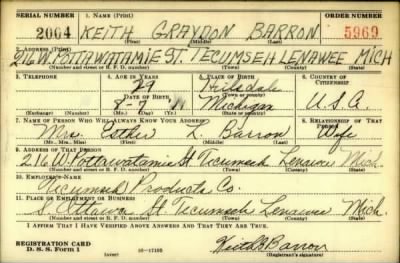 SERIAL NUMBER 1. NAME (Print) ORDER NUMBER
2004 KEITH GRAYDON BARRON 5969
(First) (Middle) (Last)
2. ADDRESS (Print)
216 W. POTTAWATAMIE ST. TECUMSEH LENAWEE MICH
(Number and street or R. F. D. number) (Town) (County) (State)
3. TELEPHONE 4. AGE IN YEARS 5. PLACE OF BIRTH 6. COUNTRY OF CITIZENSHIP
29 Hillsdale
DATE OF BIRTH (Town or county)
8-7 Michigan U.S.A.
(Exchange) (Number) (Mo.) (Day) (Yr.) (State or country)
7. NAME OF PERSON WHO WILL ALWAYS KNOW YOUR ADDRESS 8. RELATIONSHIP OF THAT PERSON
Mrs. Esther L. Barron Wife
(Mr., Mrs., Miss) (First) (Middle) (Last)
9. ADDRESS OF THAT PERSON
216 W. Pottawatamie St Tecumseh Lenawee Mich.
(Number and street or R. F. D. number) (Town) (County) (State)
10. EMPLOYER'S NAME
Tecumseh Products Co.
11. PLACE OF EMPLOYMENT OR BUSINESS
S. Ottawa St. Tecumseh Lenawee Mich.
(Number and street or R. F. D. number) (Town) (County) (State)
I AFFIRM THAT I HAVE VERIFIED ABOVE ANSWERS AND THAT THEY ARE TRUE.
REGISTRATION CARD
D. S. S. Form 1 (over) 16-17105 Keith G Barron
(Registrant's signature)